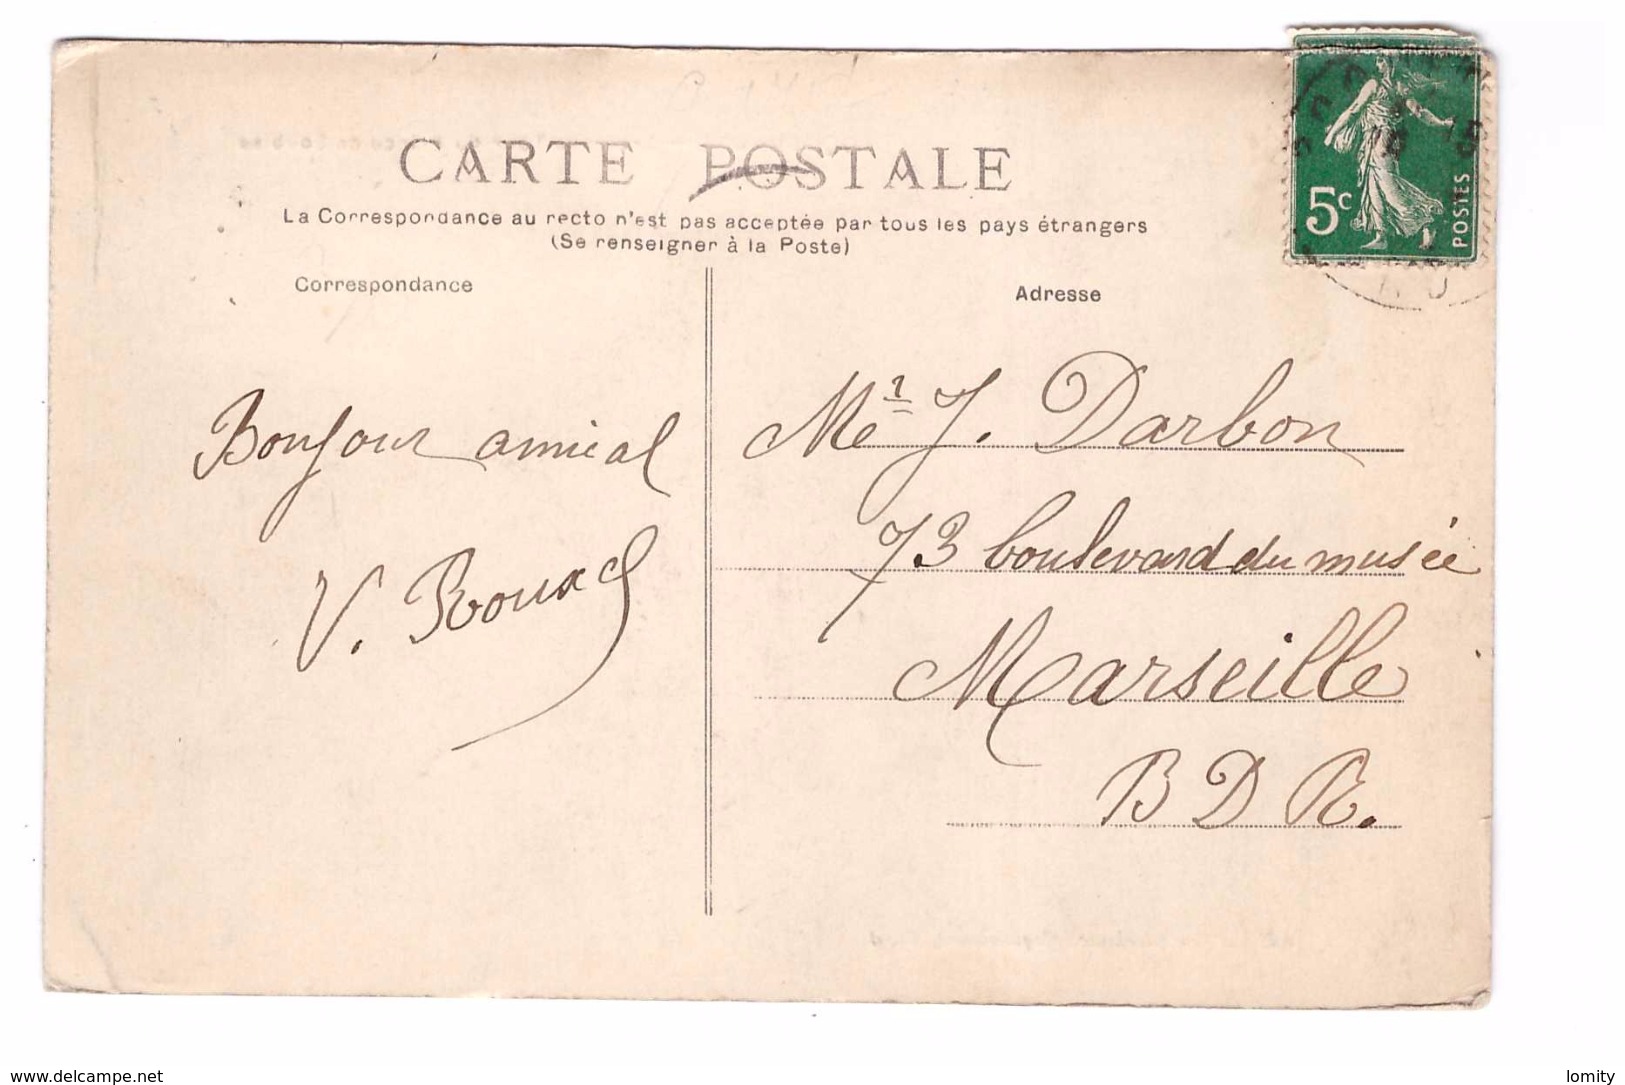 CARTE POSTALE
La Correspondance au recto n'est pas acceptée par tous les pays étrangers
(Se renseigner à la Poste)
Correspondance
Adresse
5c
POSTES
Bonjour amical
Mr J. Darbon
73 boulevard du musée
Marseille
B D R.
www.delcampe.net
lomity